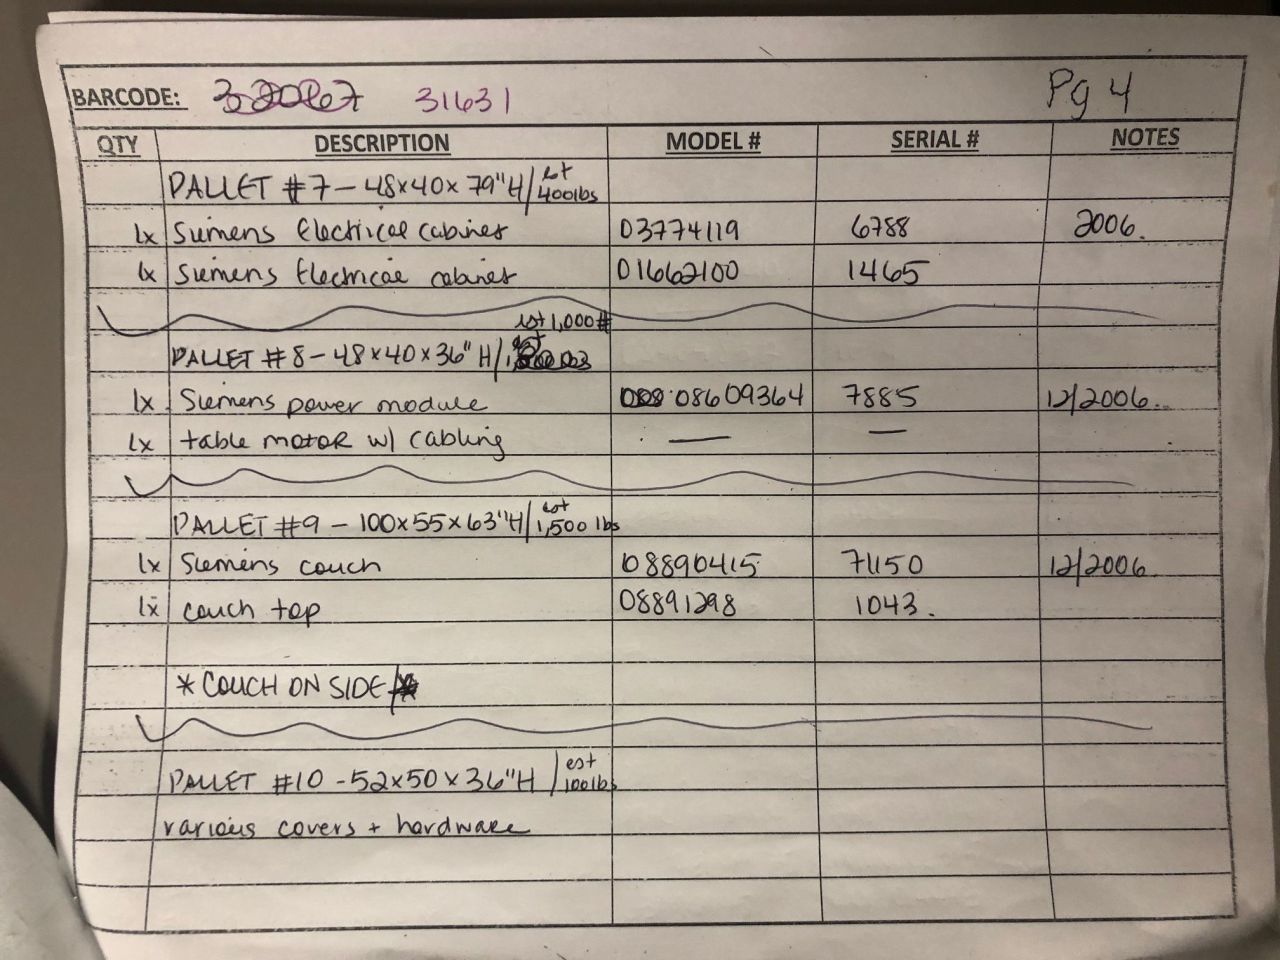 BARCODE: 31631 Pg 4
QTY DESCRIPTION MODEL # SERIAL # NOTES
PALLET #7 - 48x40x 79"H/ est 400lbs
1x Siemens Electrical cabinet 03774119 6788 2006.
1x Siemens Electrical cabinet 01662100 1465
est 1,000#
PALLET #8 - 48x40x36" H/
1x Siemens power module 08609364 7885 12/2006.
1x table motor w/ cabling — —
PALLET #9 - 100x55x63"H/ est 1,500 lbs
1x Siemens couch 08890415 71150 12/2006.
1x couch top 08891298 1043.
* COUCH ON SIDE *
PALLET #10 - 52x50x36"H / est 100lbs
various covers + hardware